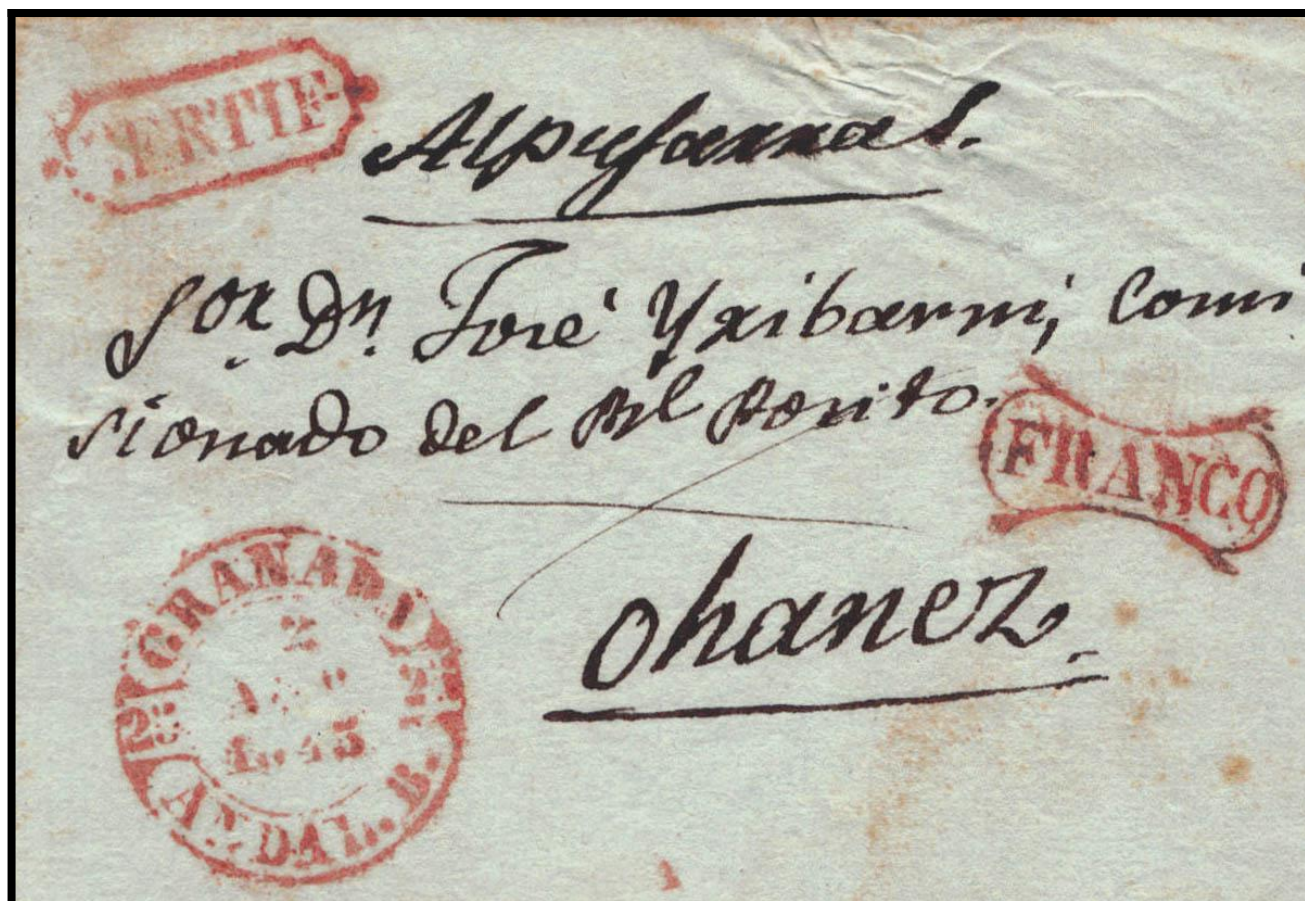 CERTIF
Alpujarras.
Sor Dn José Yribarni, Comi
sionado del Rl Posito.
FRANCO
Ohanez.
GRANADA
2
1843
25 25
ANDAL. B.